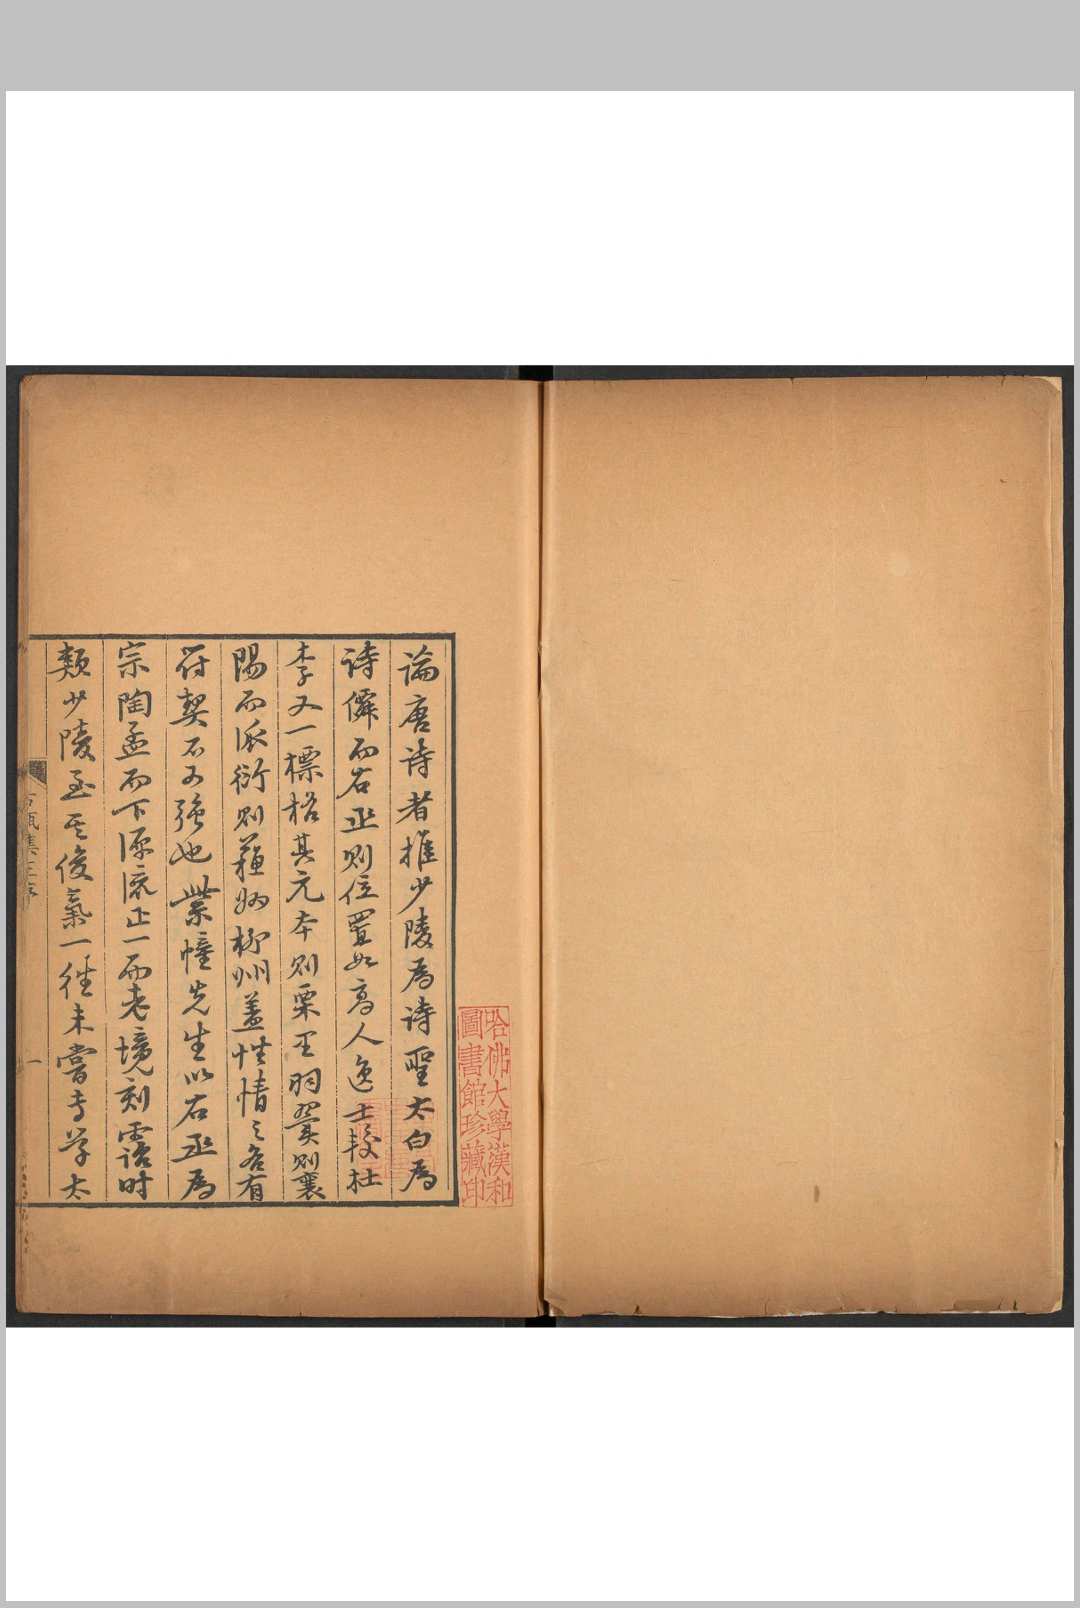 論唐詩者推少陵為詩聖太白為
詩僊而右丞則位置如高人逸士較杜
李又一標格其元本則栗里羽翼則襄
陽而派衍則蘇州柳州蓋性情之各有
符契不可強也紫幢先生以右丞為
宗陶孟而下源流正一而老境刻露時
類少陵至其俊氣一往未嘗專學太
一
哈佛大學漢和
圖書館珍藏印